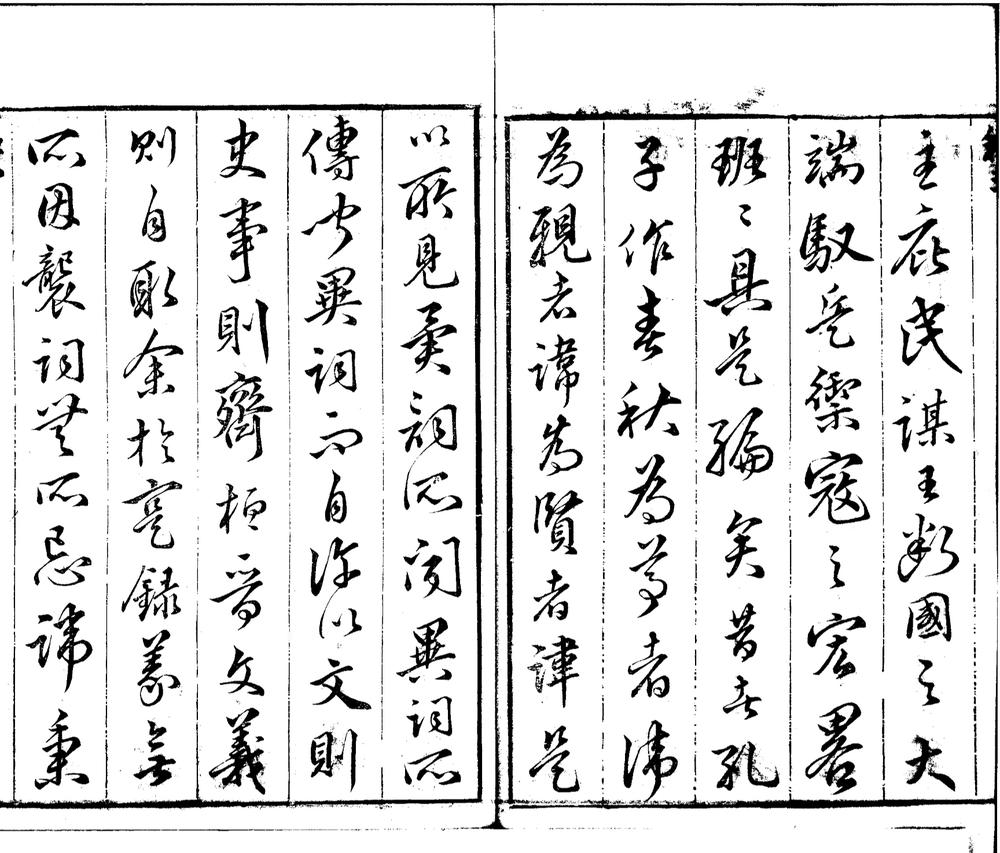 主庇民謀王斷國之大
端馭兵禦寇之宏畧
班〻具是編矣昔者孔
子作春秋為尊者諱
為親者諱為賢者諱是
以所見異詞所聞異詞所
傳聞異詞而自許以文則
史事則齊桓晉文義
則自取余於寔録義無
所因襲詞無所忌諱秉